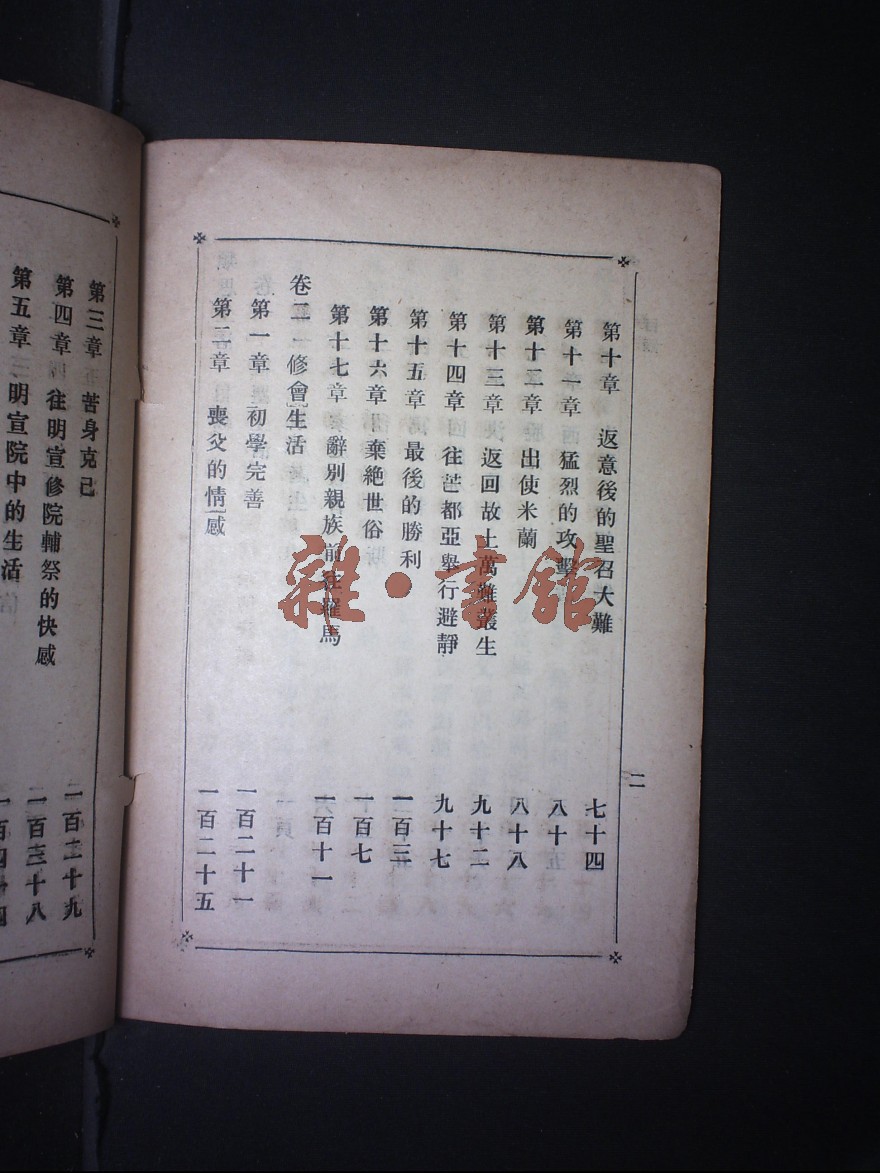 第十章 返意後的聖召大難 七十四
第十一章 猛烈的攻擊 八十五
第十二章 出使米蘭 八十八
第十三章 返回故土萬難叢生 九十二
第十四章 往芒都亞舉行避靜 九十七
第十五章 最後的勝利 一百三
第十六章 棄絶世俗 一百七
第十七章 辭別親族前往羅馬 一百十一
卷二 修會生活
第一章 初學完善 一百二十一
第二章 喪父的情感 一百二十五
二
第三章 苦身克己 一百二十九
第四章 往明宣修院輔祭的快感 一百三十八
第五章 明宣院中的生活 一百四十四
雜·書館